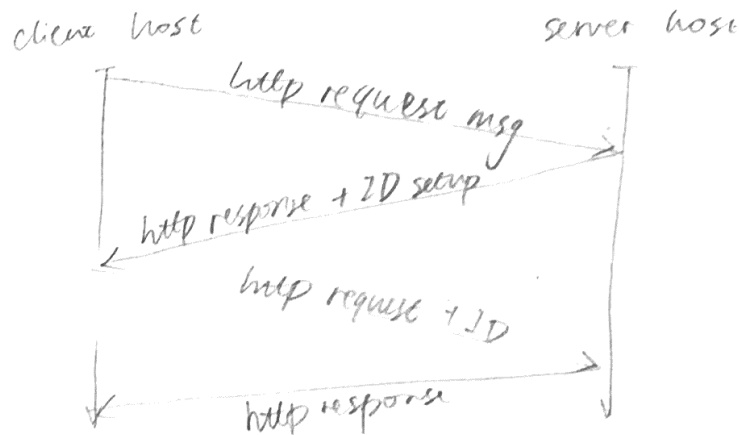 client host
server host
http request msg
http response + ID setup
http request + ID
http response